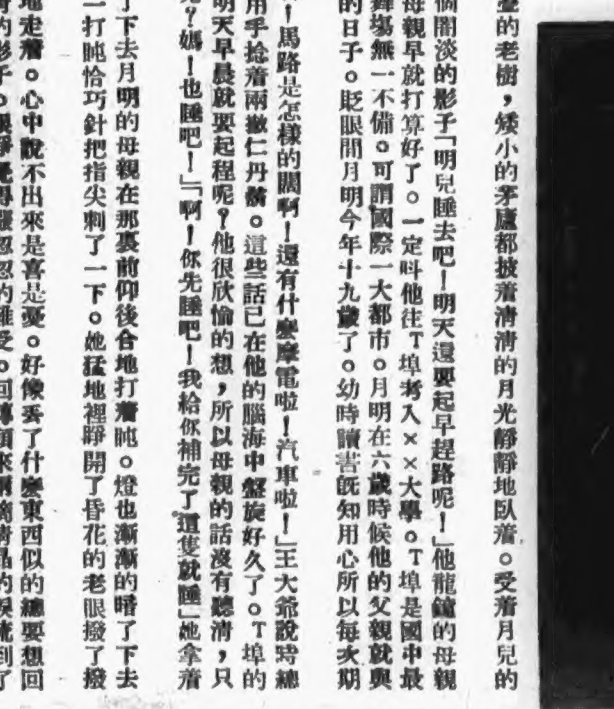 的老樹，矮小的茅廬都披着清清的月光靜靜地臥着。受着月兒的
個闇淡的影子「明兒睡去吧！明天還要起早趕路呢！」他龍鐘的母親
母親早就打算好了。一定呌他往T埠考入××大學。T埠是國中最
舞場無一不備。可謂國際一大都市。月明在六歲時候他的父親就與
的日子。貶眼間月明今年十九歲了。幼時讀書旣知用心所以每次期
！馬路是怎樣的闊啊！還有什麼摩電啦！汽車啦！」王大爺說時總
用手捻着兩撇仁丹鬍。這些話已在他的腦海中盤旋好久了。T埠的
明天早晨就要起程呢？他很欣愉的想，所以母親的話沒有聽清，只
？媽！也睡吧！」「啊！你先睡吧！我給你補完了這隻就睡」她拿着
了下去月明的母親在那裏前仰後合地打着盹。燈也漸漸的暗了下去
一打盹恰巧針把指尖刺了一下。她猛地裡睜開了昏花的老眼撥了撥
地走着。心中說不出來是喜是憂。好像丟了什麼東西似的總要想回
的影子。眼睜